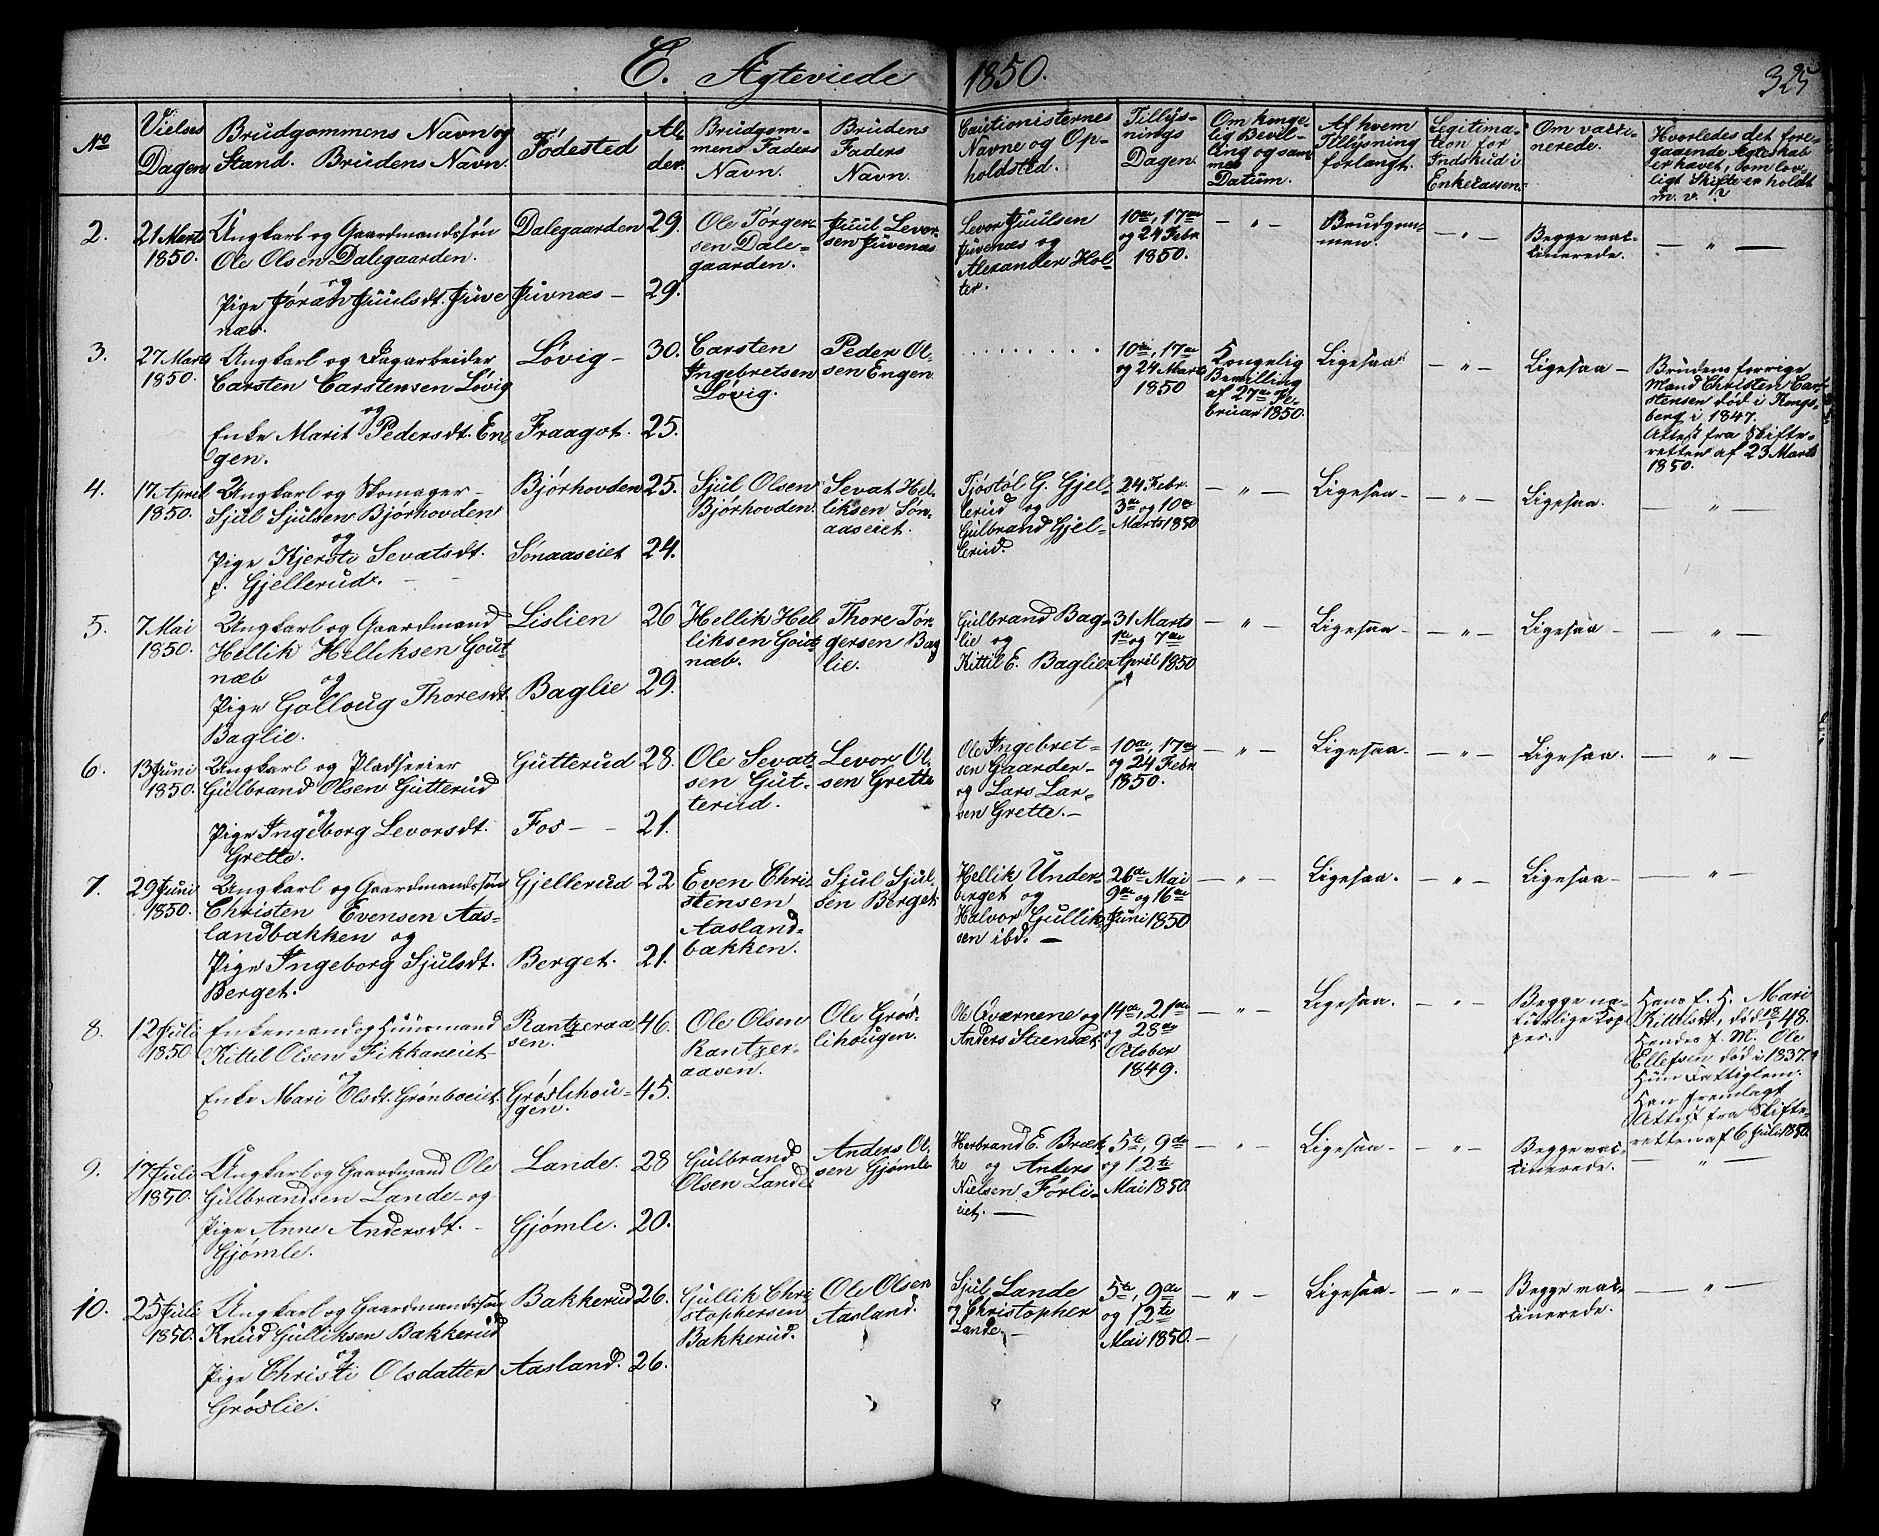 E. Ægteviede 1850. 325
No
Vielses Dagen
Brudgommens Navn og Stand. Brudens Navn.
Födested
Alder.
Brudgommens Faders Navn.
Brudens Faders Navn.
Cautionisternes Navne og Opholdsted.
Tillysnings Dagen.
Om kongelig Bevilling og sammes Datum.
Af hvem Tillysning forlangt.
Legitimation for Indskud i Enkecassen.
Om vaccinerede.
Hvorledes det foregaaende Ægteskab er hævet, som lovligt Skifte er holdt m. v.?
2.
21 Marts
1850.
Ungkarl og Gaardmandssön
Ole Olsen Dalegaarden.
og
Pige Jöran Juulsdt. Juve
næs.
Dalegaarden
Juvnæs –
29.
29.
Ole Törger-
sen Dale-
gaarden.
Juul Levor
sen Juvenæs
Levor Juulsen
Juvenæs og
Alexander Hol-
ter.
10de, 17de
og 24 Febr.
1850.
– " –
Brudgom-
men.
– " –
Begge vac-
cinerede.
– " –
3.
27 Marts
1850.
Ungkarl og Dagarbeider
Carsten Carstensen Lövig
og
Enke Marit Pedersdt. En-
gen.
Lövig –
Fraagot.
30.
25.
Carsten
Ingebretsen
Lövig.
Peder Ol-
sen Engen.
. . . . . . . .
10de, 17de
og 24 Marts
1850
Kongelig
Bevilling
af 27de Fe-
bruar 1850.
Ligesaa
– " –
Ligesaa –
Brudens forrige
Mand Christen Car-
stensen död i Kongs-
berg i 1847.
Attest fra Skifte-
retten af 23 Marts
1850.
4.
17 April
1850.
Ungkarl og Skomager –
Sjul Sjulsen Björhovden
og
Pige Kjersti Sevatsdt.
f. Gjellerud.
Björhovden
Sönaaseiet
25.
24.
Sjul Olsen
Björhovden.
Sevat Hel-
liksen Sön-
aaseiet.
Tjöstöl G. Gjel-
lerud og
Gulbrand Gjel-
lerud.
24 Febr.
3de og 10de
Marts 1850
– " –
Ligesaa –
– " –
Ligesaa.
– " –
5.
7 Mai
1850.
Ungkarl og Gaardmand
Hellik Helliksen Gout-
næb og
Pige Golloug Thoresdt.
Baglie.
Lislien
Baglie
26
29.
Hellik Hel
liksen Gout
næb.
Thore Tör-
gersen Bag
lie.
Gulbrand Bag-
lie og
Kittil E. Baglie
31 Marts
1te og 7de
April 1850
– " –
Ligesaa –
– " –
Ligesaa –
– " –
6.
13 Juni
1850.
Ungkarl og Pladseier
Gulbrand Olsen Gutterud
og
Pige Ingeborg Levorsdt.
Grette.
Gutterud
Fos – –
28.
21.
Ole Sevat
sen Gut-
terud.
Levor Ol-
sen Grette
Ole Ingebret-
sen Gaarder –
og Lars Lar-
sen Grette. –
10de, 17de
og 24 Febr.
1850.
– " –
Ligesaa –
– " –
Ligesaa.
– " –
7.
29 Juni
1850.
Ungkarl og Gaardmandssön
Christen Evensen Aas-
landbakken og
Pige Ingeborg Sjulsdt.
Berget.
Gjellerud
Berget.
22
21.
Even Chri-
stensen
Aasland-
bakken.
Sjul Sjul-
sen Berget
Hellik Under-
berget og
Halvor Gullik
sen ibd. –
26de Mai
9de og 16de
Juni 1850
– " –
Ligesaa.
– " –
Ligesaa –
– " –
8.
12 Juli
1850
Enkemand og Huusmand
Kittil Olsen Fikkaneiet
og
Enke Mari Olsdt. Grönboeiet
Rantzeraa
sen.
Gröslihou-
gen.
46.
45.
Ole Olsen
Rantzer-
aasen.
Ole Grös-
lihougen.
Ole Qværnene og
Anders Steensæt
14de, 21de
og 28de
October
1849.
– " –
Ligesaa.
– " –
Begge na-
turlige Kop-
per.
Hans f. H. Mari
Kittilsdt., död 18/1 48.
Hendes f. M. Ole
Ellefsen död i 1837.
Hun Fattiglem.
Han fremlagt
Attest fra Skifte-
retten af 6 Juli 1850.
9.
17 Juli
1850.
Ungkarl og Gaardmand Ole
Gulbrandsen Lande – og
Pige Anne Andersdt. –
Gjömle.
Lande.
Gjömle.
28
20.
Gulbrand
Olsen Lande
Anders Ol-
sen Gjömle
Herbrand E. Bræk-
ke og Anders
Nielsen Förli-
eiet. –
5te, 9de
og 12te
Mai 1850.
– " –
Ligesaa –
– " –
Begge vac-
cinerede.
– " –
10.
25 Juli
1850.
Ungkarl og Gaardmandssön
Knud Gulliksen Bakkerud
og
Pige Christi Olsdatter
Gröslie.
Bakkerud
Aasland.
26.
26.
Gullik Chri
stophersen
Bakkerud.
Ole Olsen
Aasland.
Sjul Lande
og Christopher
Lande. –
5te, 9de
og 12te
Mai 1850. –
– " –
Ligesaa –
– " –
Begge vac-
cinerede.
– " –